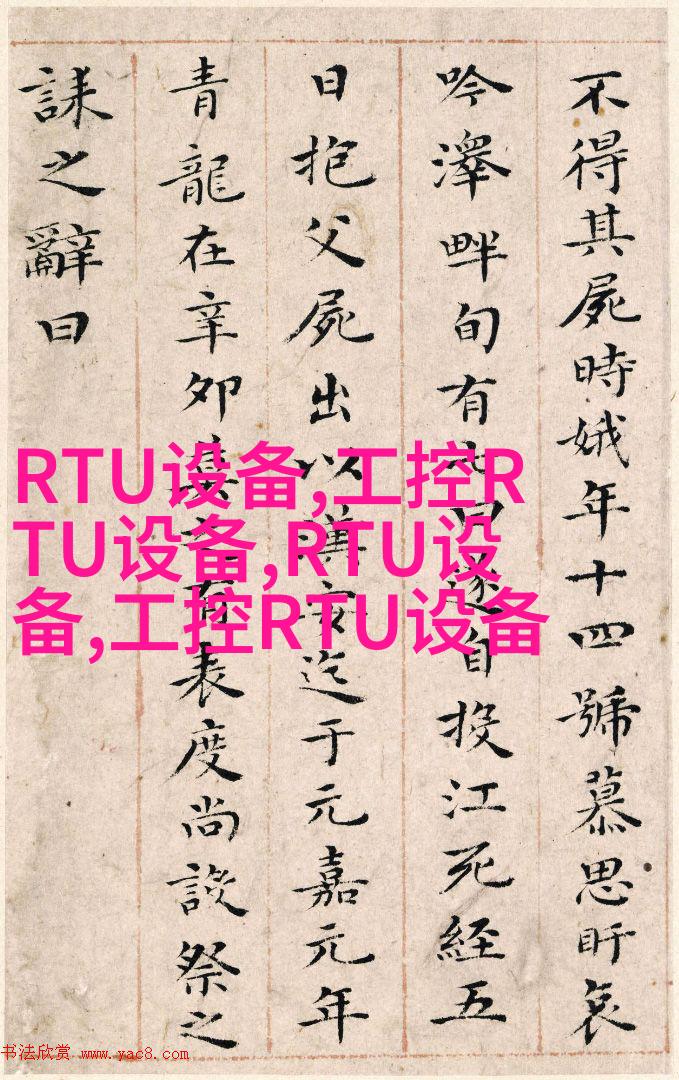 不得其屍時娥年十四號慕思盱哀
吟澤畔旬有七日遂自投江死經五
日抱父屍出以漢安迄于元嘉元年
青龍在辛卯莫之有表度尚設祭之
誄之辭曰
RTU设备,工控R
TU设备,RTU设
备,工控RTU设备
书法欣赏 www.yac8.com